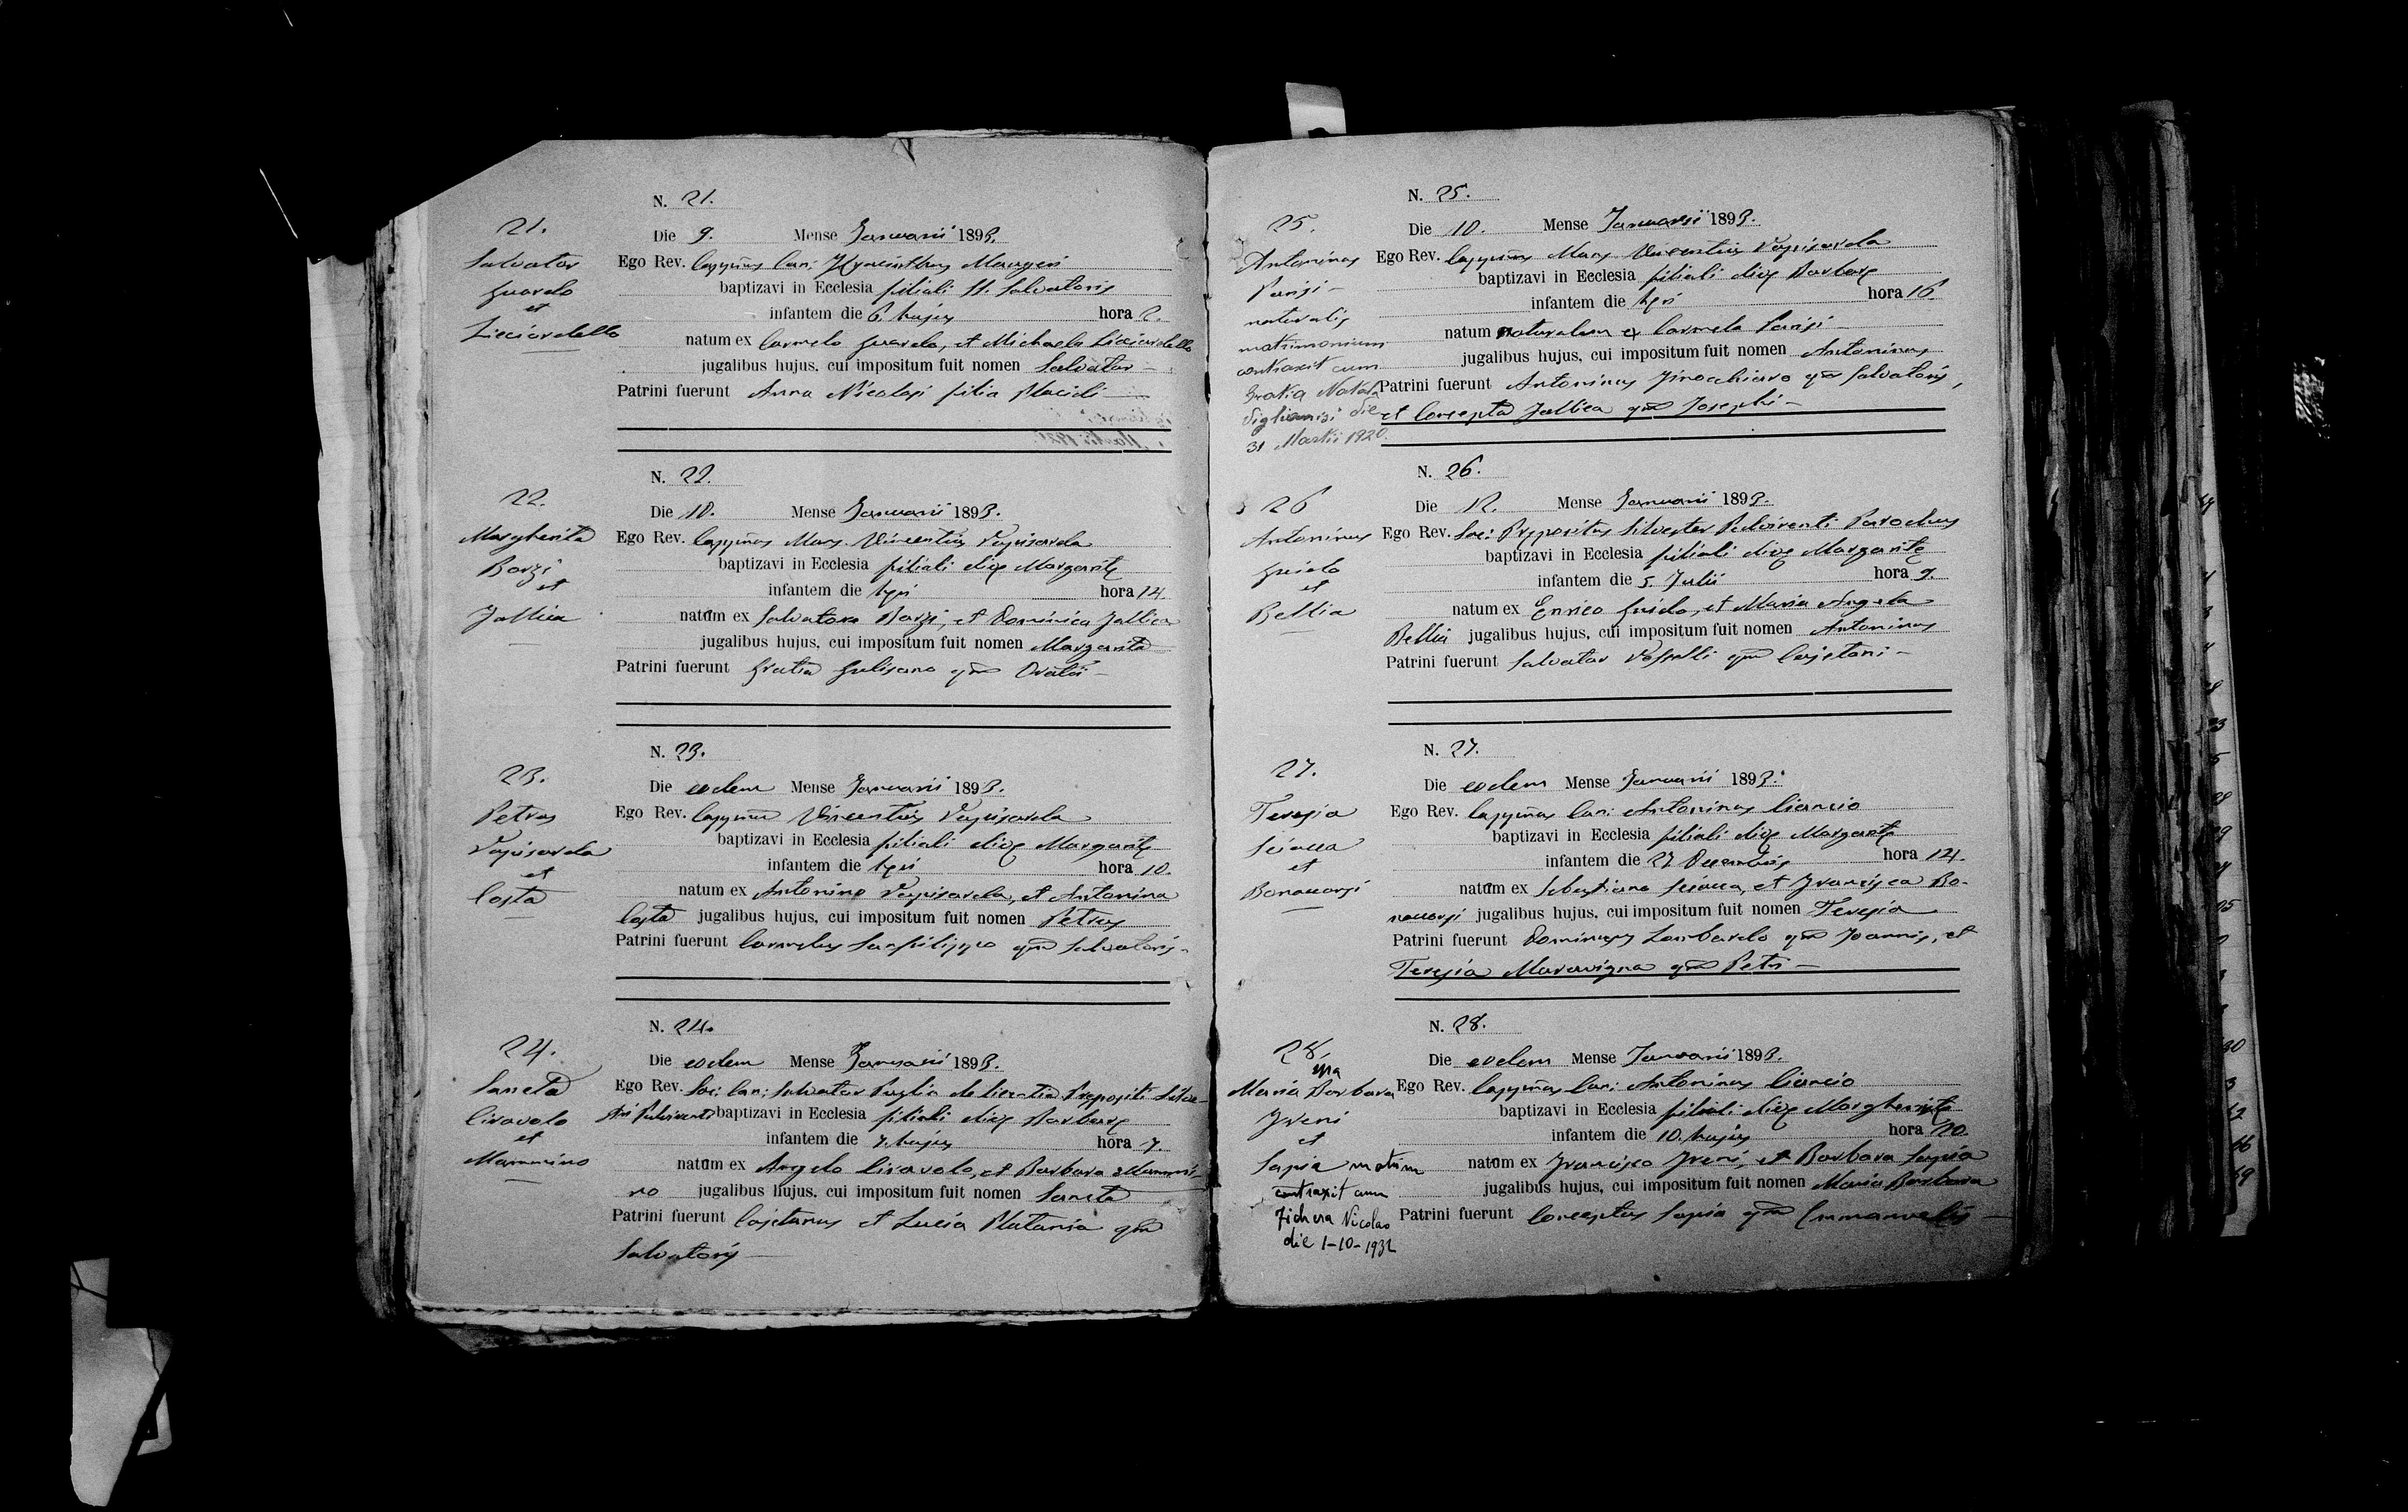 N. 21.
21.
Die 9. Mense Januarii 1893.
Salvator
Guardo
et
Licciardello
Ego Rev. Cappñus Can: Hyacinthus Maugeri
baptizavi in Ecclesia filiali SS. Salvatoris
infantem die 6. hujus hora 2.
natum ex Carmelo Guardo, et Michaela Licciardello
jugalibus hujus, cui impositum fuit nomen Salvator
Patrini fuerunt Anna Nicolosi filia Placidi
N. 22.
22.
Die 10. Mense Januarii 1893.
Margherita
Barzi
et
Jallica
Ego Rev. Cappñus Mans. Vincentius Vapisarda
baptizavi in Ecclesia filiali divę Margaritę
infantem die heri hora 14.
natam ex Salvatore Barzi, et Dominica Jallica
jugalibus hujus, cui impositum fuit nomen Margarita
Patrini fuerunt Gratia Gulisano qm
N. 23.
23.
Die eodem Mense Januarii 1893.
Petrus
Vapisarda
et
Costa
Ego Rev. Cappñus Vincentius Vapisarda
baptizavi in Ecclesia filiali divę Margaritę
infantem die heri hora 10.
natum ex Antonino Vapisarda, et Antonina
Costa jugalibus hujus, cui impositum fuit nomen Petrus
Patrini fuerunt Carmelus Sanfilippo qm Salvatoris
N. 24.
24.
Die eodem Mense Januarii 1893.
Sancta
Ciravolo
et
Mammino
Ego Rev. Sac: Can: Salvator Puglia de licentia Prępositi Silve-
stri Pulvirenti baptizavi in Ecclesia filiali divę Barbarę
infantem die 7. hujus hora 7.
natam ex Angelo Ciravolo, et Barbara Mammi-
no jugalibus hujus, cui impositum fuit nomen Sancta
Patrini fuerunt Cajetanus et Lucia Platania qm
Salvatoris
N. 25.
25.
Die 10. Mense Januarii 1893.
Antoninus
Parisi
naturalis
matrimonium
contraxit cum
Gratia Natala
die
31 Martii 1920.
Ego Rev. Cappñus Mans Vincentius Vapisarda
baptizavi in Ecclesia filiali divę Barbarę
infantem die heri hora 16.
natum naturalem ex Carmela Parisi
jugalibus hujus, cui impositum fuit nomen Antoninus
Patrini fuerunt Antoninus Finocchiaro qm Salvatoris,
et Concepta Jallica qm Josephi
N. 26.
26
Die 12. Mense Januarii 1893.
Antoninus
Guido
et
Bellia
Ego Rev. Sac: Prępositus Silvester Pulvirenti Parochus
baptizavi in Ecclesia filiali divę Margaritę
infantem die 5. Julii hora 9.
natum ex Enrico Guido, et Maria Angela
Bellia jugalibus hujus, cui impositum fuit nomen Antoninus
Patrini fuerunt Salvator Vassalli qm Cajetani
N. 27.
27.
Die eodem Mense Januarii 1893.
Teresia
Sciacca
et
Bonaccorsi
Ego Rev. Cappñus Can: Antoninus Ciancio
baptizavi in Ecclesia filiali divę Margaritę
infantem die 27 Decembris hora 14.
natam ex Sebastiano Sciacca, et Francisca Bo-
naccorsi jugalibus hujus, cui impositum fuit nomen Teresia
Patrini fuerunt Dominicus Lombardo qm Joannis, et
Teresia Maravigna qm Petri
N. 28.
28.
Die eodem Mense Januarii 1893.
Maria Barbara
Freni
et
Sapia matrim
contraxit cum
Fichera Nicolao
die 1-10-1932
Ego Rev. Cappñus Can: Antoninus Ciancio
baptizavi in Ecclesia filiali divę Margheritę
infantem die 10. hujus hora 20.
natam ex Francisco Freni, et Barbara Sapia
jugalibus hujus, cui impositum fuit nomen Maria Barbara
Patrini fuerunt Conceptus Sapia qm Emmanuelis